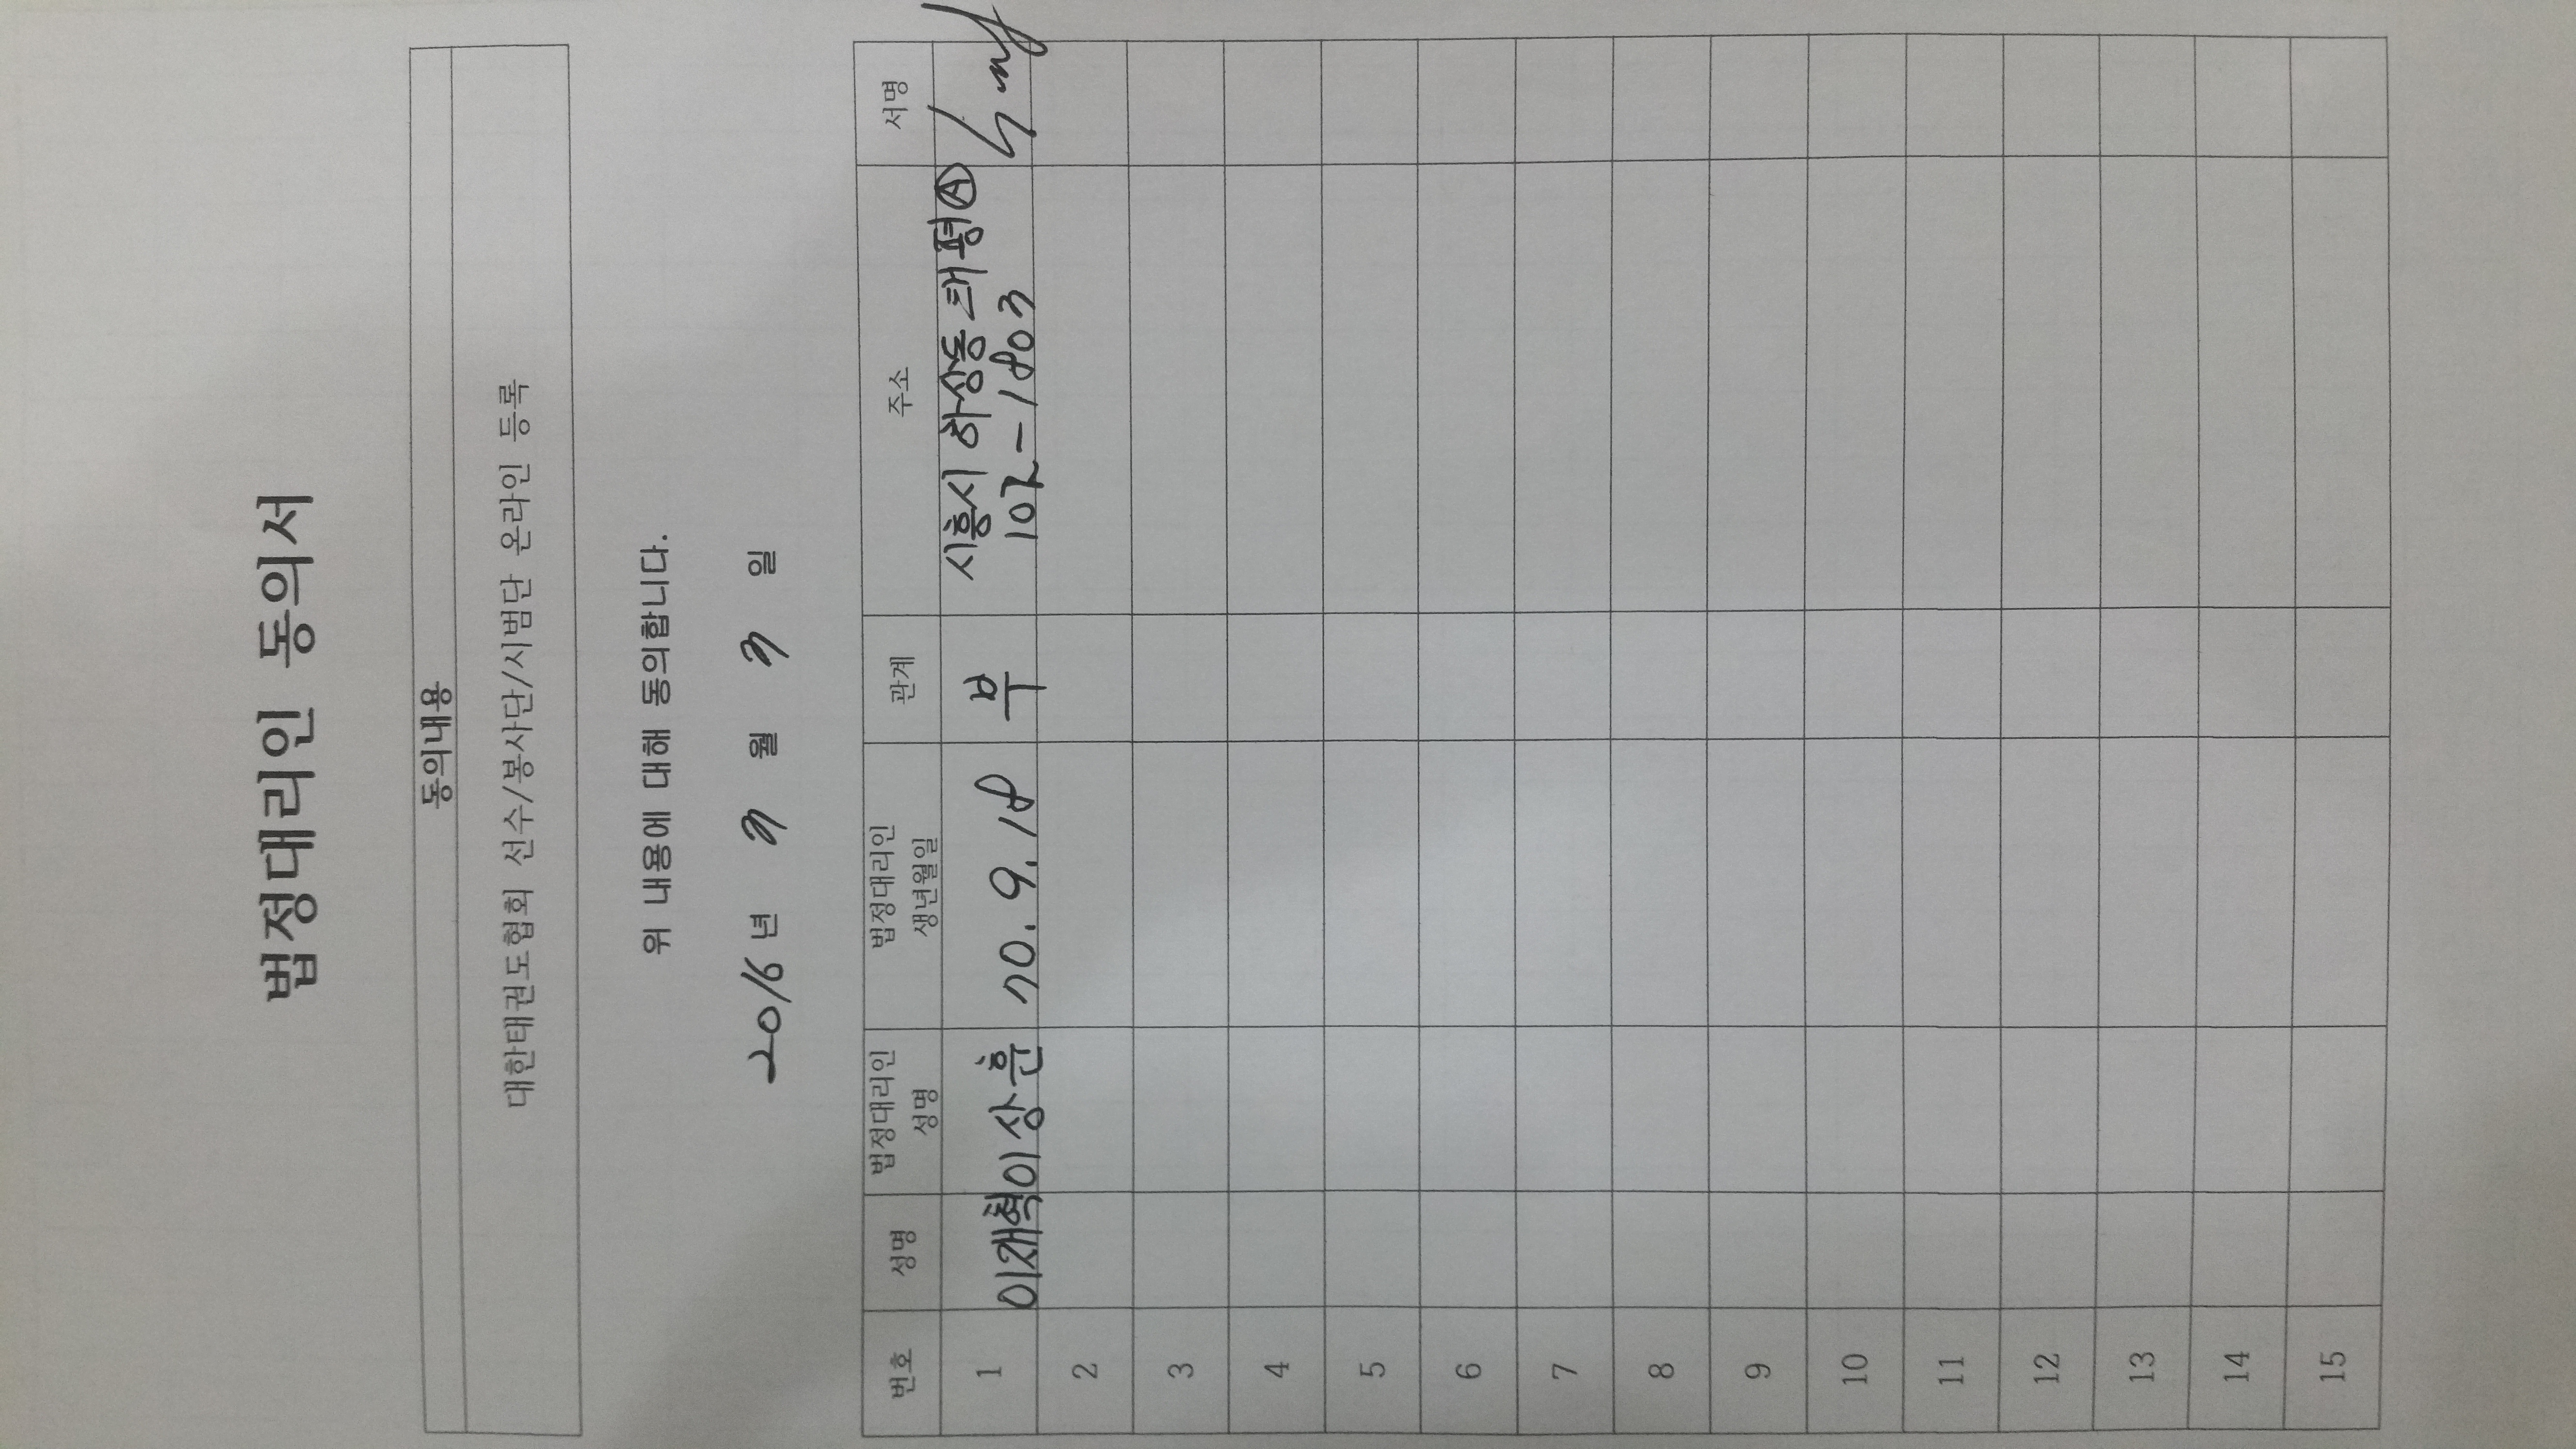 법정대리인 동의서
동의내용
대한태권도협회 선수/봉사단/시범단 온라인 등록
위 내용에 대해 동의합니다.
2016년 3 월 3 일
번호 성명 법정대리인 성명 법정대리인 생년월일 관계 주소 서명
1 이재혁 이상훈 70. 9. 18 부 시흥시 하상동 태평Ⓐ
102-1803
2
3
4
5
6
7
8
9
10
11
12
13
14
15